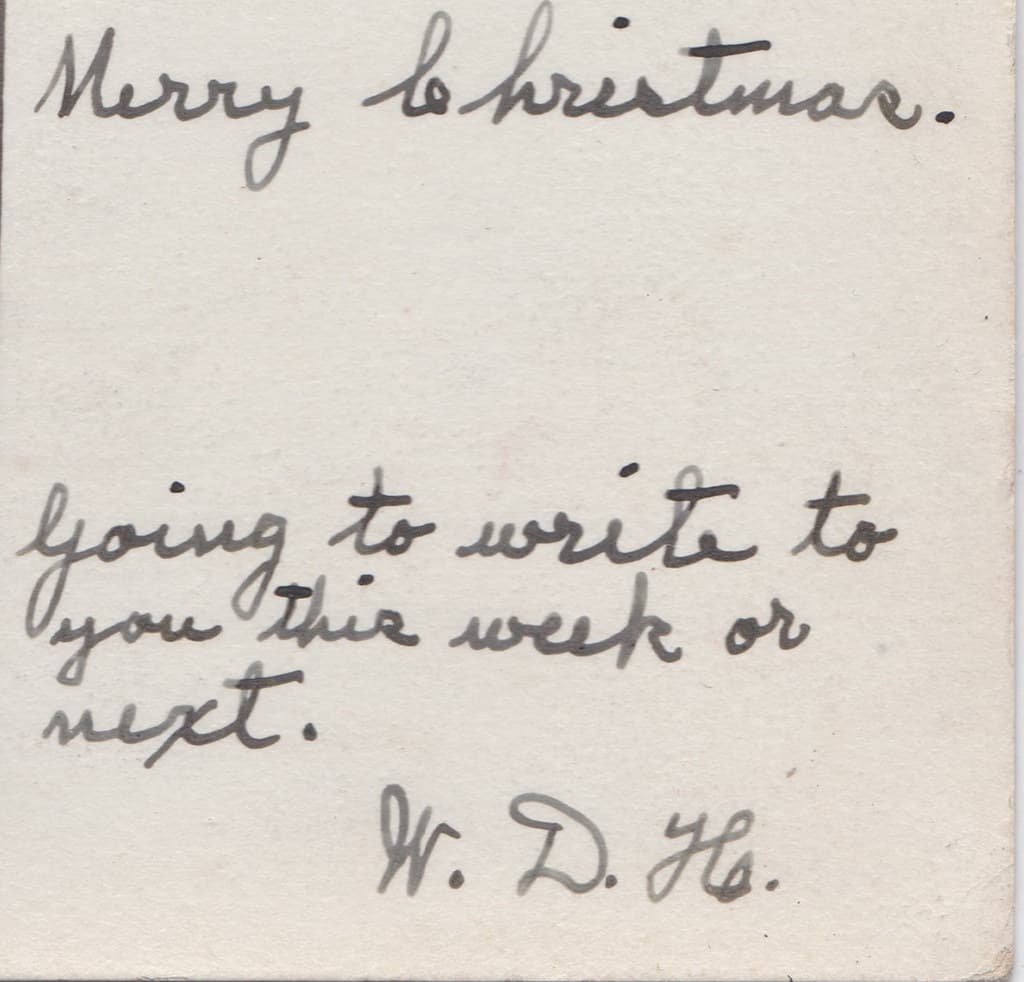 Merry Christmas.
Going to write to
you this week or
next.
W. D. H.